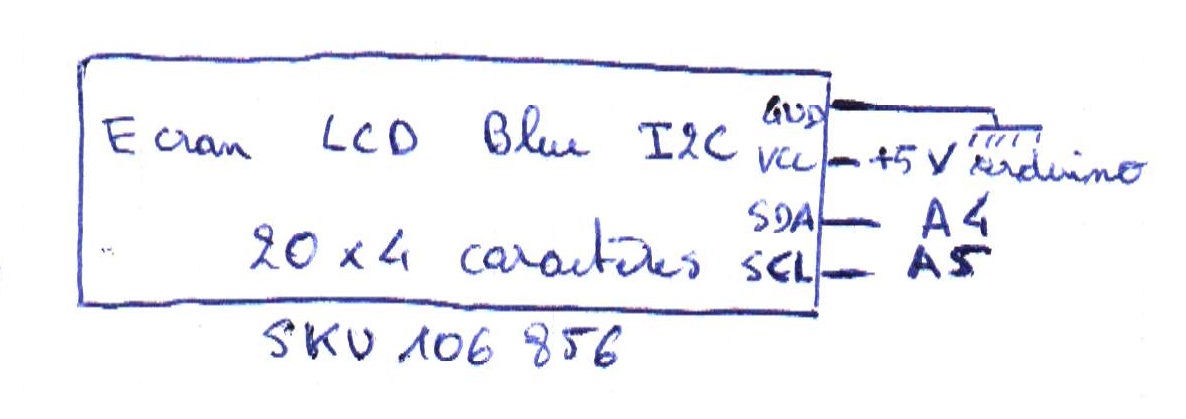 Ecran LCD Blue I2C
20 x 4 caractères
GND
VCC +5V Arduino
SDA A4
SCL A5
SKU 106 856